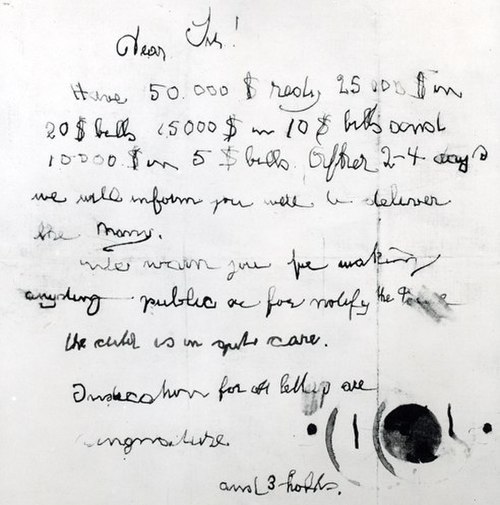 Dear Sir!
Have 50.000 $ redy 25000 $ in
20 $ bills 15000 $ in 10 $ bills and
10000 $ in 5 $ bills. After 2-4 days
we will inform you were to deliver
the Mony.
We warn you for making
anyding public or for notify the
the child is in gute care.
Indication for all letters are
singnature
and 3 holds.